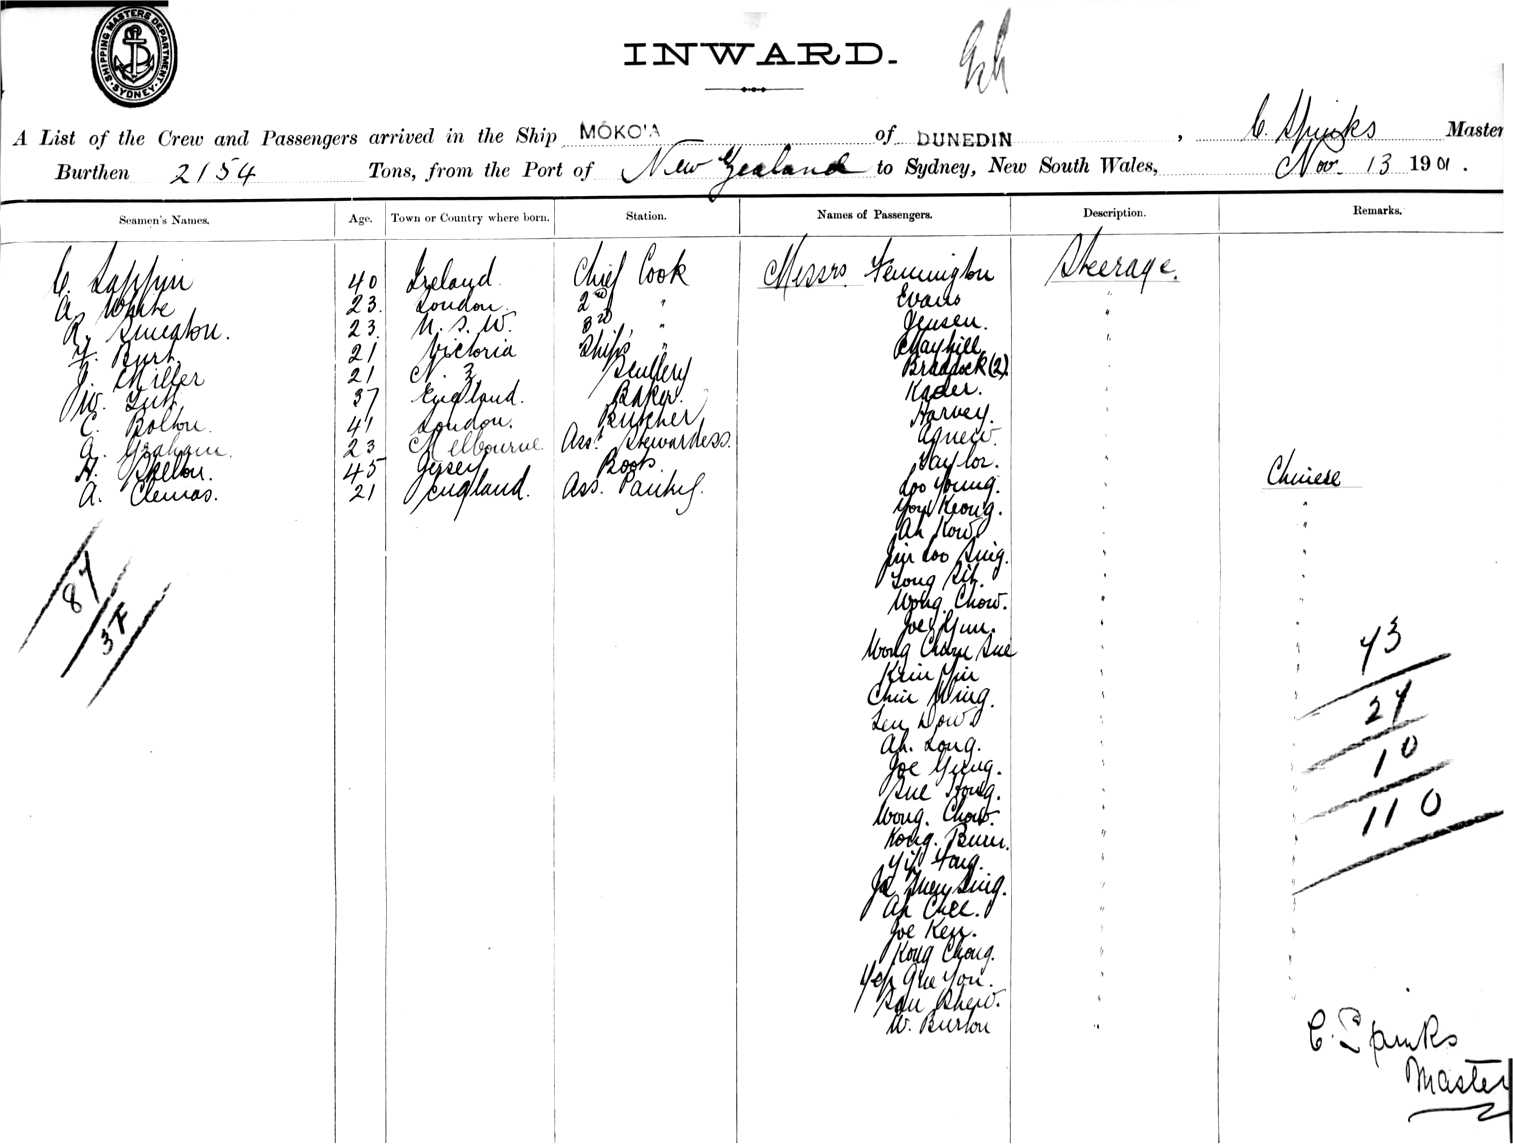 SHIPPING MASTERS DEPARTMENT. SYDNEY.
INWARD.
A List of the Crew and Passengers arrived in the Ship MOKOIA of DUNEDIN, C. Spinks Master
Burthen 2154 Tons, from the Port of New Zealand to Sydney, New South Wales, Nov. 13 1901.
Seamen's Names. Age. Town or Country where born. Station. Names of Passengers. Description. Remarks.
C. Lappin 40 Ireland. Chief Cook Messrs Fennington Steerage.
A. White 23. London. 2nd " Evans "
R. Smeaton. 23. N. S. W. 3rd " Jensen. "
F. Burt. 21 Victoria Ships " Mayhill "
J. Miller 21 N. Z. Scullery Braddock (2)
W. 37 England. Baker. Kader.
C. Bolton. 41 London. Butcher Harvey.
A. Graham. 23 Melbourne Asst Stewardess. Agnew.
H. 45 Jersey Boots. Taylor.
A. Clemas. 21 England. Ass. Pantry. Loo Young. Chinese
You Keong. "
Ah Kow "
Jim Loo Sing. "
Long "
Wong Chow. "
Joe Gun. "
Wong Chun Sue "
Kim Yin "
Chin Ming. "
Len Dow "
Ah. Long. "
Joe Gung. "
Sue Hong. "
Wong. Chow. "
Kong. Bun. "
Yip Fang. "
Sing. "
Ah Chee. "
Joe Ken. "
Kong Chong. "
Yep Que You. "
Sam Shew. "
W. Burton "
87
37
73
27
10
110
C. Spinks
Master